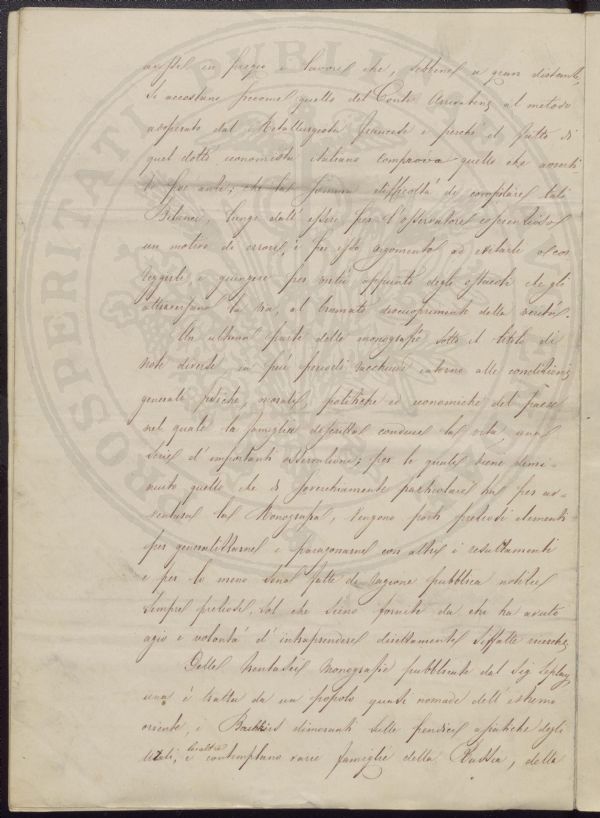 in pregio i lavori che, sebbene a gran distanza,
si accostano siccome quello del Conte Arrivabene al metodo
adoperato dal Metallurgista francese e perchè il fatto di
quel dotto economista italiano comprova quello che avvertii
che la somma difficoltà di compilare tali
Bilanci, lunge dall'essere per l'osservatore coscienzioso
un motivo di errore, è per esso argomento ad evitarlo o cor
reggerlo, e giungere per mezzo appunto degli ostacoli che gli
attraversano la via, al bramato discuoprimento della verità.
Un ultima parte delle monografie sotto il titolo di
note diverse in più periodi racchiude intorno alle condizioni
generali fisiche, morali, politiche ed economiche del paese
nel quale la famiglia descritta conduce la vita, una
serie d'importanti osservazioni; per le quali viene dimi-
nuito quello che di soverchiamente particolare ha per av-
ventura la Monografia, vengono porti preziosi elementi
per generalizzarne e paragonarne con altri i resultamenti
e per lo meno sono fatte di ragione pubblica notizie
sempre preziose, sol che sieno fornite da chi ha avuto
agio e volontà d'intraprendere direttamente siffatte ricerche
Delle trentasei Monografie pubblicate dal Sig Leplay
una è tratta da un popolo quasi nomade dell'estremo
oriente, i Baskirs dimoranti sulle pendici asiatiche degli
Urali, contemplano varie famiglie della Russia, della